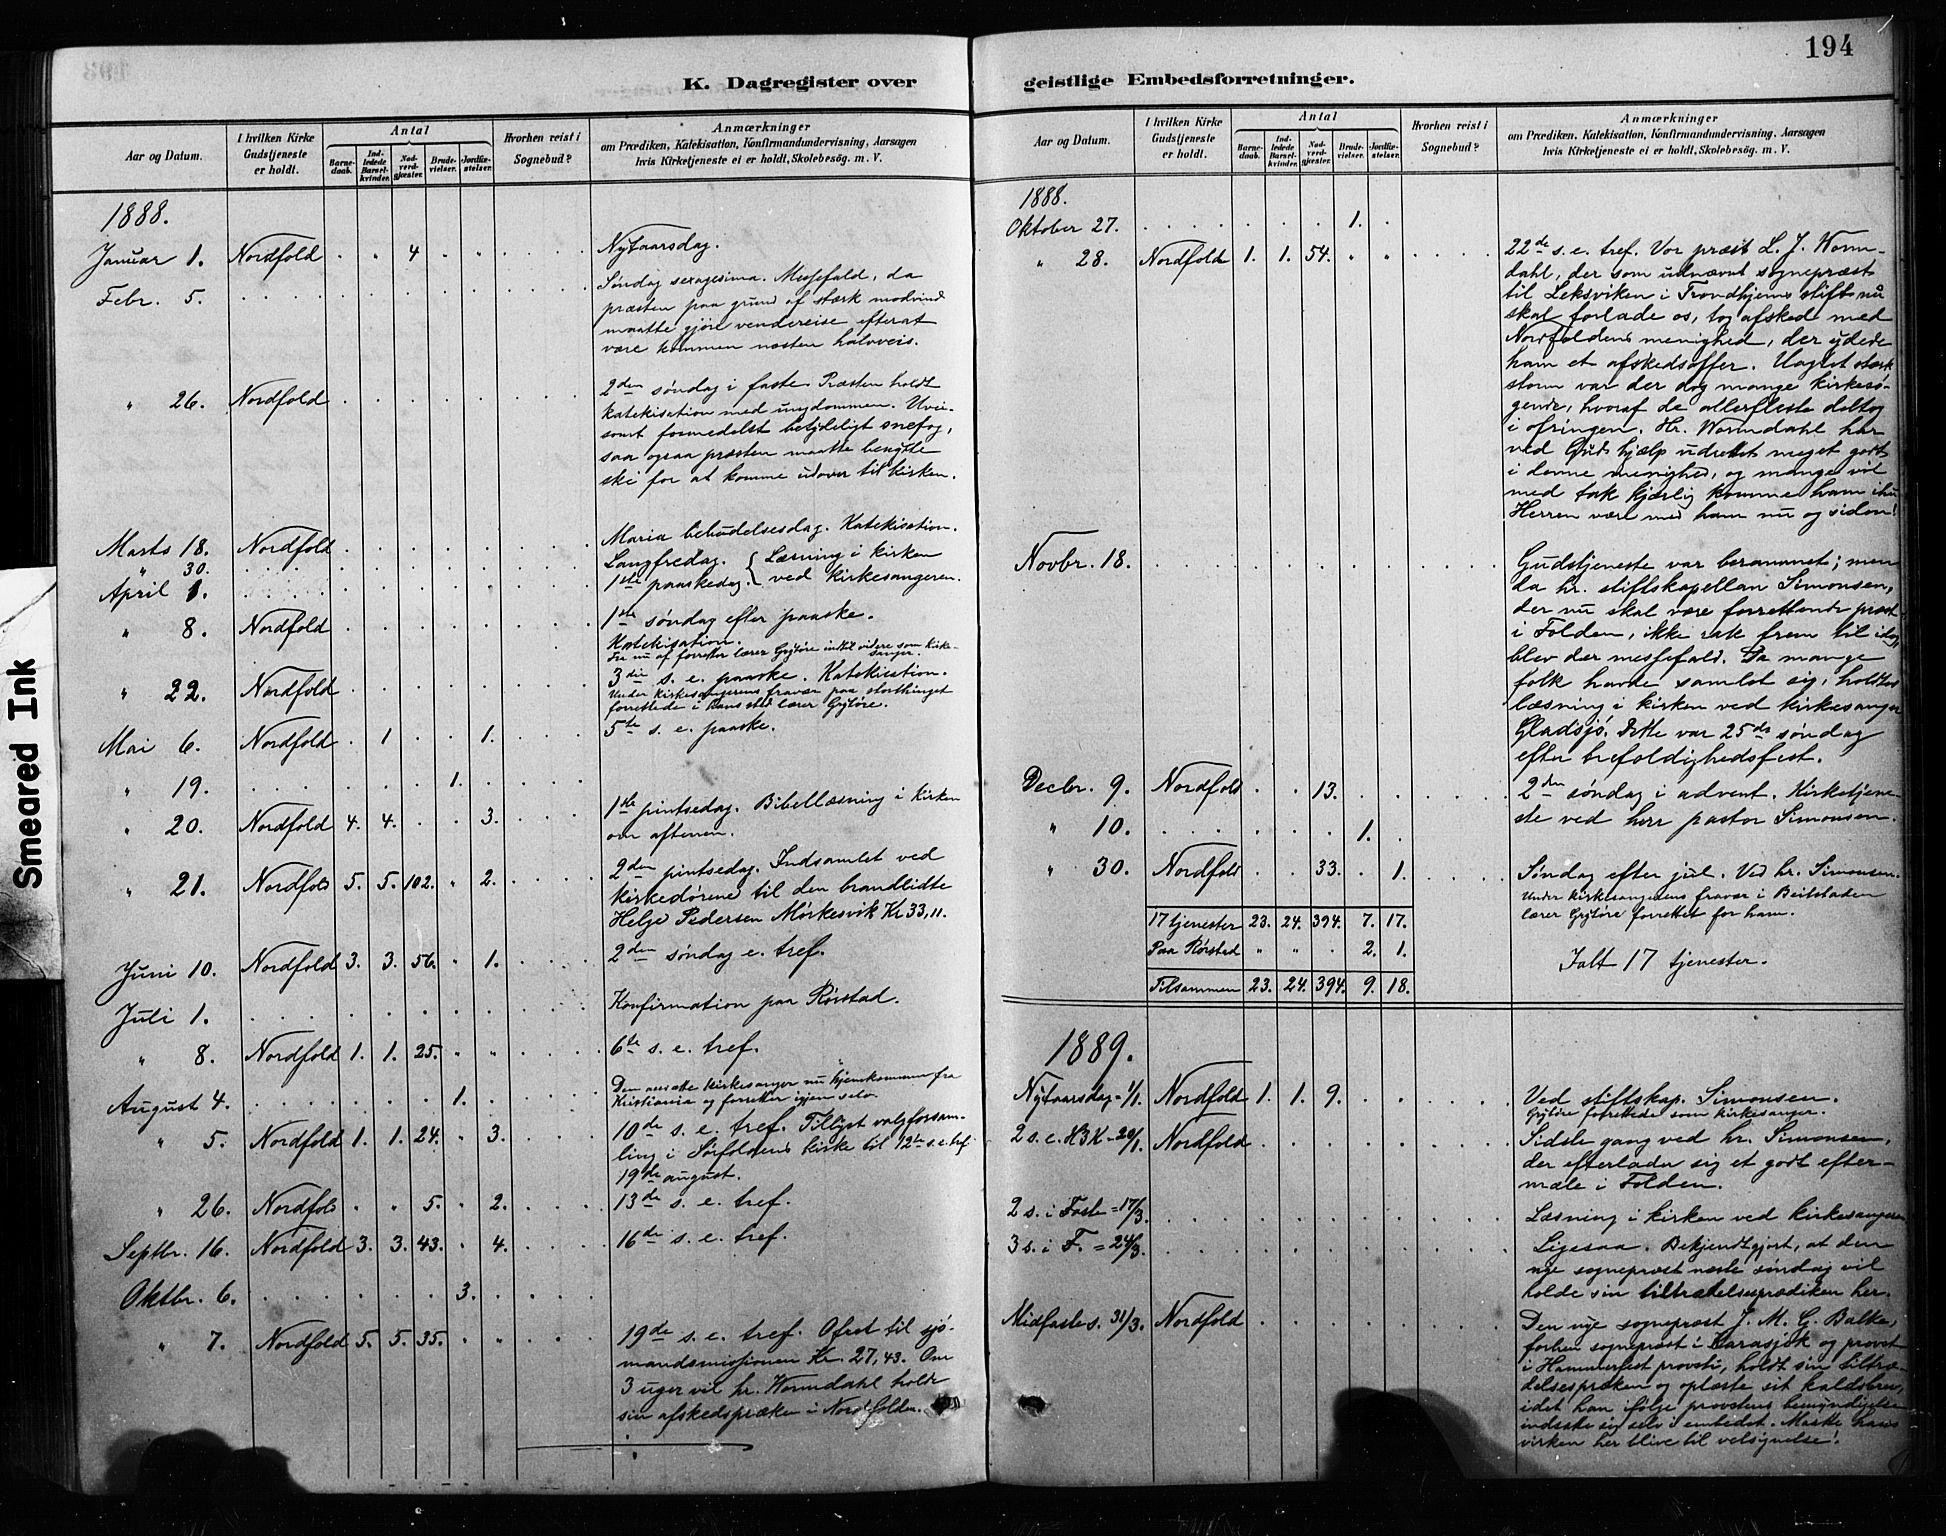 194
K. Dagregister over
geistlige Embedsforretninger.
Smeared Ink
Aar og Datum.
I hvilken Kirke Gudstjeneste er holdt.
Antal
Barnedaab.
Indledede Barselkvinder.
Nadverdgjæster.
Brudevielser.
Jordfæstelser.
Hvorhen reist i Sognebud?
Anmærkninger
om Prædiken, Katekisation, Konfirmandundervisning, Aarsagen
hvis Kirketjeneste ei er holdt, Skolebesøg. m. V.
1888.
Januar 1. Nordfold . " 4 " " Nytaarsdag.
Febr. 5. Søndag sexagesima. Messefald, da
præsten paa grund af stærk modvind
maatte gjøre vendereise efterat
være kommen næsten halvveis.
" 26. Nordfold 2den søndag i faste. Præsten holdt
katekisation med ungdommen. Uvei-
somt formedelst betydeligt snefog,
saa ogsaa præsten maatte benytte
ski for at komme udover til kirken.
Marts 18. Nordfold Maria bebudelsesdag. Katekisation.
" 30. Langfredag. { Læsning i kirken
April 1. 1ste paaskedag. { ved kirkesangeren.
" 8. Nordfold 1ste søndag efter paaske.
Katekisation.
Fra nu af forretter lærer Grytøre indtil videre som kirke-
sanger.
" 22. Nordfold 3die s. e. paaske. Katekisation.
Under kirkesangerens fravær paa storthinget
forrettede i hans sted lærer Grytøre.
Mai 6. Nordfold . 1 . . 1. 5te s. e. paaske.
" 19. 1.
" 20. Nordfold 4. 4. . . 3. 1ste pintsedag. Bibellæsning i kirken
om aftenen.
" 21. Nordfold 5. 5. 102. " 2. 2den pintsedag. Indsamlet ved
kirkedørene til den brandlidte
Helge Pedersen Mørkesvik Kr 33,11.
Juni 10. Nordfold 3. 3. 56. . 1. 2den søndag e. tref.
Juli 1. Konfirmation paa Rørstad.
" 8. Nordfold 1. 1. 25. " " 6te s. e. tref.
Den ansatte kirkesanger nu hjemkommen fra
August 4. 1. Kristiania og forretter igjen selv.
" 5. Nordfold 1. 1. 24. " 3. 10de s. e. tref. Tillyst valgforsam-
ling i Sørfoldens kirke til 12te s. e. tref.
19de august.
" 26. Nordfold " " 5. " 2. 13de s. e. tref.
Septbr. 16. Nordfold 3. 3. 43. " 4. 16de s. e. tref.
Oktbr. 6. 3.
" 7. Nordfold 5. 5. 35. " " 19de s. e. tref. Ofret til sjø-
mandsmissionen Kr. 27,43. Om
3 uger vil hr. Wormdahl holde
sin afskedspræken i Nordfolden.
Aar og Datum.
I hvilken Kirke Gudstjeneste er holdt.
Antal
Barnedaab.
Indledede Barselkvinder.
Nadverdgjæster.
Brudevielser.
Jordfæstelser.
Hvorhen reist i Sognebud?
Anmærkninger
om Prædiken, Katekisation, Konfirmandundervisning, Aarsagen
hvis Kirketjeneste ei er holdt, Skolebesøg. m. V.
1888.
Oktober 27. 1.
" 28. Nordfold 1. 1. 54. " " 22de s. e. tref. Vor præst L. J. Worm-
dahl, der som udnævnt sognepræst
til Leksviken i Trondhjems stift nu
skal forlade os, tog afsked med
Nordfoldens menighed, der ydede
ham et afskedsoffer. Uagtet stærk
storm var der dog mange kirkesø-
gende, hvoraf de allerfleste deltog
i ofringen. Hr. Wormdahl har
ved Guds hjælp udrettet meget godt
i denne menighed, og mange vil
med tak kjærlig komme ham ihu
Herren være med ham nu og siden!
Novbr. 18. Gudstjeneste var berammet; men
da hr. stiftskapellan Simonsen,
der nu skal være forrettende præst
i Folden, ikke rak frem til idag,
blev der messefald. Da mange
folk havde samlet sig, holdtes
læsning i kirken ved kirkesanger
Gladsjø. Dette var 25de søndag
efter trefoldighedsfest.
Decbr. 9. Nordfold . . 13. 2den søndag i advent. Kirketjene-
ste ved herr pastor Simonsen.
" 10. 1.
" 30. Nordfold 33. . 1. Søndag efter jul. Ved hr. Simonsen.
Under kirkesangerens fravær i Beitstaden
lærer Grytøre forrettet for ham.
17 tjenester 23. 24. 394. 7. 17.
Paa Rørstad " " . 2. 1.
Ialt 17 tjenester.
Tilsammen 23. 24. 394. 9. 18.
1889.
Nytaarsdag = 1/1. Nordfold 1. 1. 9. Ved stiftskap. Simonsen.
Grytøre forrettede som kirkesanger.
2 s. e. H3K = 20/1. Nordfold Sidste gang ved hr. Simonsen,
der efterlader sig et godt efter-
mæle i Folden.
2 s. i Faste = 17/3. Læsning i kirken ved kirkesangeren
3 s. i F. = 24/3. Ligesaa. Bekjendtgjort, at den
nye sognepræst næste søndag vil
holde sin tiltrædelsesprædiken her.
Midfaste s. 31/3. Nordfold Den nye sognepræst J. M. G. Balke,
forhen sognepræst i Karasjok og provst
i Hammerfest provsti, holdt sin tiltræ-
delsespræken og oplæste sit kaldsbrev,
idet han ifølge provstens bemyndigelse
indsatte sig selv i embedet. Maatte hans
virken her blive til velsignelse!